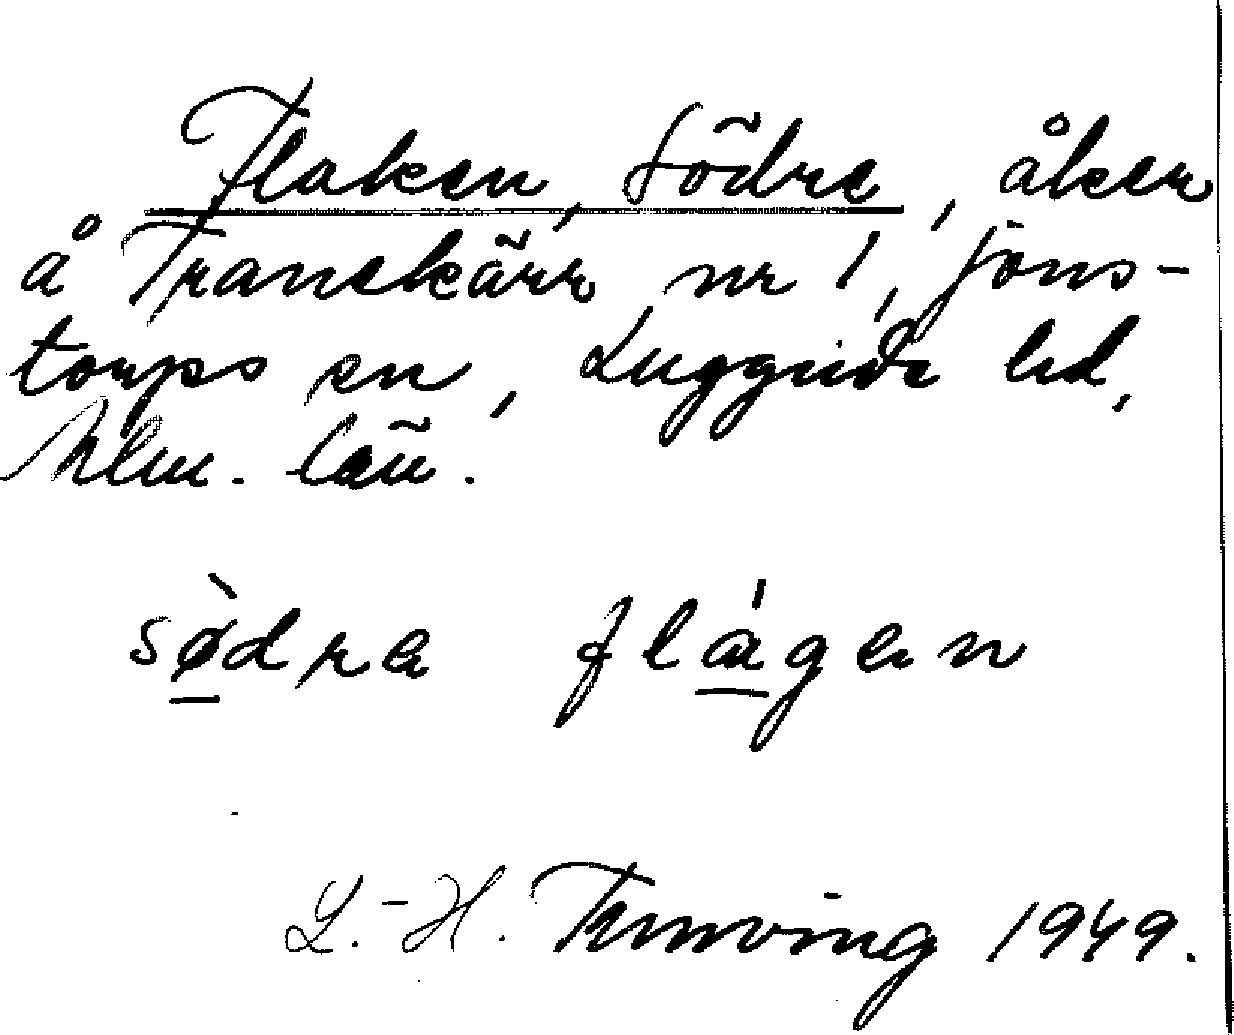 Flaken, Södra, åker
å Tranekärr nr 1, Jons-
torps sn, Luggude hd,
Mlm. län.
sødra flagan
L.-H. Trunving 1949.